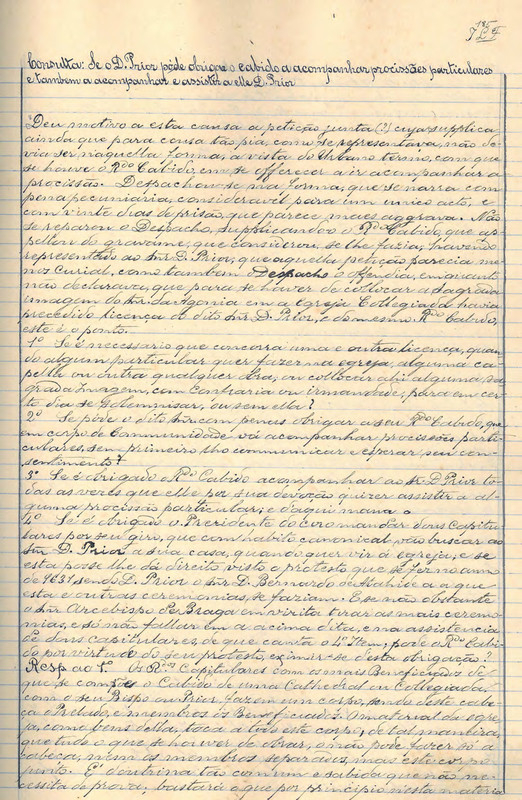 Consulta: Se o D. Prior póde obrigar o cabido a acompanhar procissões particulares
e tambem a acompanhar e assistir a elle D. Prior
Deu motivo a esta causa a petição junta (?) cuja supplica,
ainda que para cousa tão pia, como se representava, não de-
via ser naquella forma, a vista do urbano termo, com que
se houve o Rdo Cabido, em se offerecer a ir acompanhar a
procissão. Despachou-se na forma, que se narra com
pena pecuniaria, consideravel para um unico acto, e
com vinte dias de prisão, que parece mais aggrava. Não
se reparou o Despacho, supplicando o Rdo Cabido, que ap-
pellou do gravame, que considerou se lhe fazia, havendo
representado ao Snr D. Prior, que aquella petição parecia me-
nos curial, como tambem o Despacho o offendia, emquanto
não declarava, que para se haver de collocar a sagrada
imagem do Snr da Agonia em a Egreja Collegiada havia
precedido licença do dito Snr D. Prior, e do mesmo Rdo Cabido,
este é o ponto.
1º Se é necessario que concorra uma e outra licença, quan-
do algum particular quer fazer na egreja, alguma ca-
pella ou outra qualquer obra, ou collocar ahi alguma sa-
grada Imagem, com Confraria ou irmandade, para em cer-
to dia se solemnisar, ou sem ella?
2º Se póde o dito Snr com penas obrigar a seu Rdo Cabido, que
em corpo de Communidade vá acompanhar procissões parti-
culares, sem primeiro lho communicar e esperar seu con-
sentimento?
3º Se é obrigado o Rdo Cabido acompanhar ao Sr D. Prior to-
das as vezes que elle por sua devoção quizer assistir a al-
guma procissão particular; e d'aqui mana o
4º Se é obrigado o Presidente do coro mandar dous Capitu-
lares por seu giro, que com habito canonical, vão buscar ao
Snr D. Prior a sua casa, quando quer vir á egreja; e se
esta posse lhe dá direito visto o protesto que se fez no anno
de 1631, sendo D. Prior o Snr D. Bernardo de Atahide a que
esta e outras ceremonias, se faziam. E se não obstante
o Snr Arcebispo de Braga em visita tirar as mais ceremo-
nias, e só não fallar em a acima dita, e na assistencia
de dous capitulares, de que canta o 4º Item, póde o Rdo Cabi-
do por virtude do seu protesto, eximir-se desta obrigação?
Resp. ao 1º. Os Rdos Capitulares com os mais Beneficiados de
que se compõe o Cabido de uma Cathedral ou Collegiada,
com o seu Bispo ou Prior, fazem um corpo, sendo deste cabe-
ça o Prelado, e membros os Beneficiados. O material da egre-
ja, como bens della, toca a todo este corpo, de tal maneira,
que tudo o que se houver de obrar, o não pode fazer só a
cabeça, nem os membros separados, mas este corpo
junto. E' doutrina tão commum e sabida que não ne-
cessita de prova; bastará o que por principio nesta materia